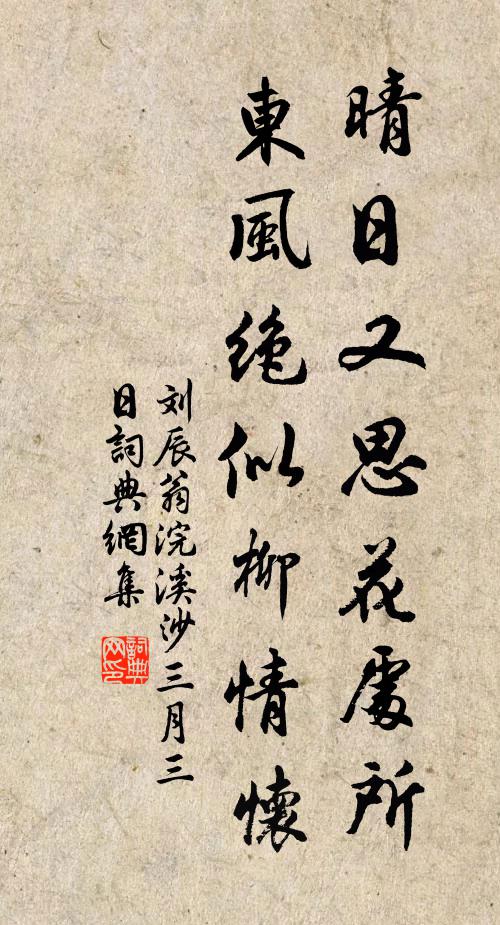 晴日又思花處所
東風絶似柳情懷
刘辰翁浣溪沙三月三
日詞典網集
詞典
网印